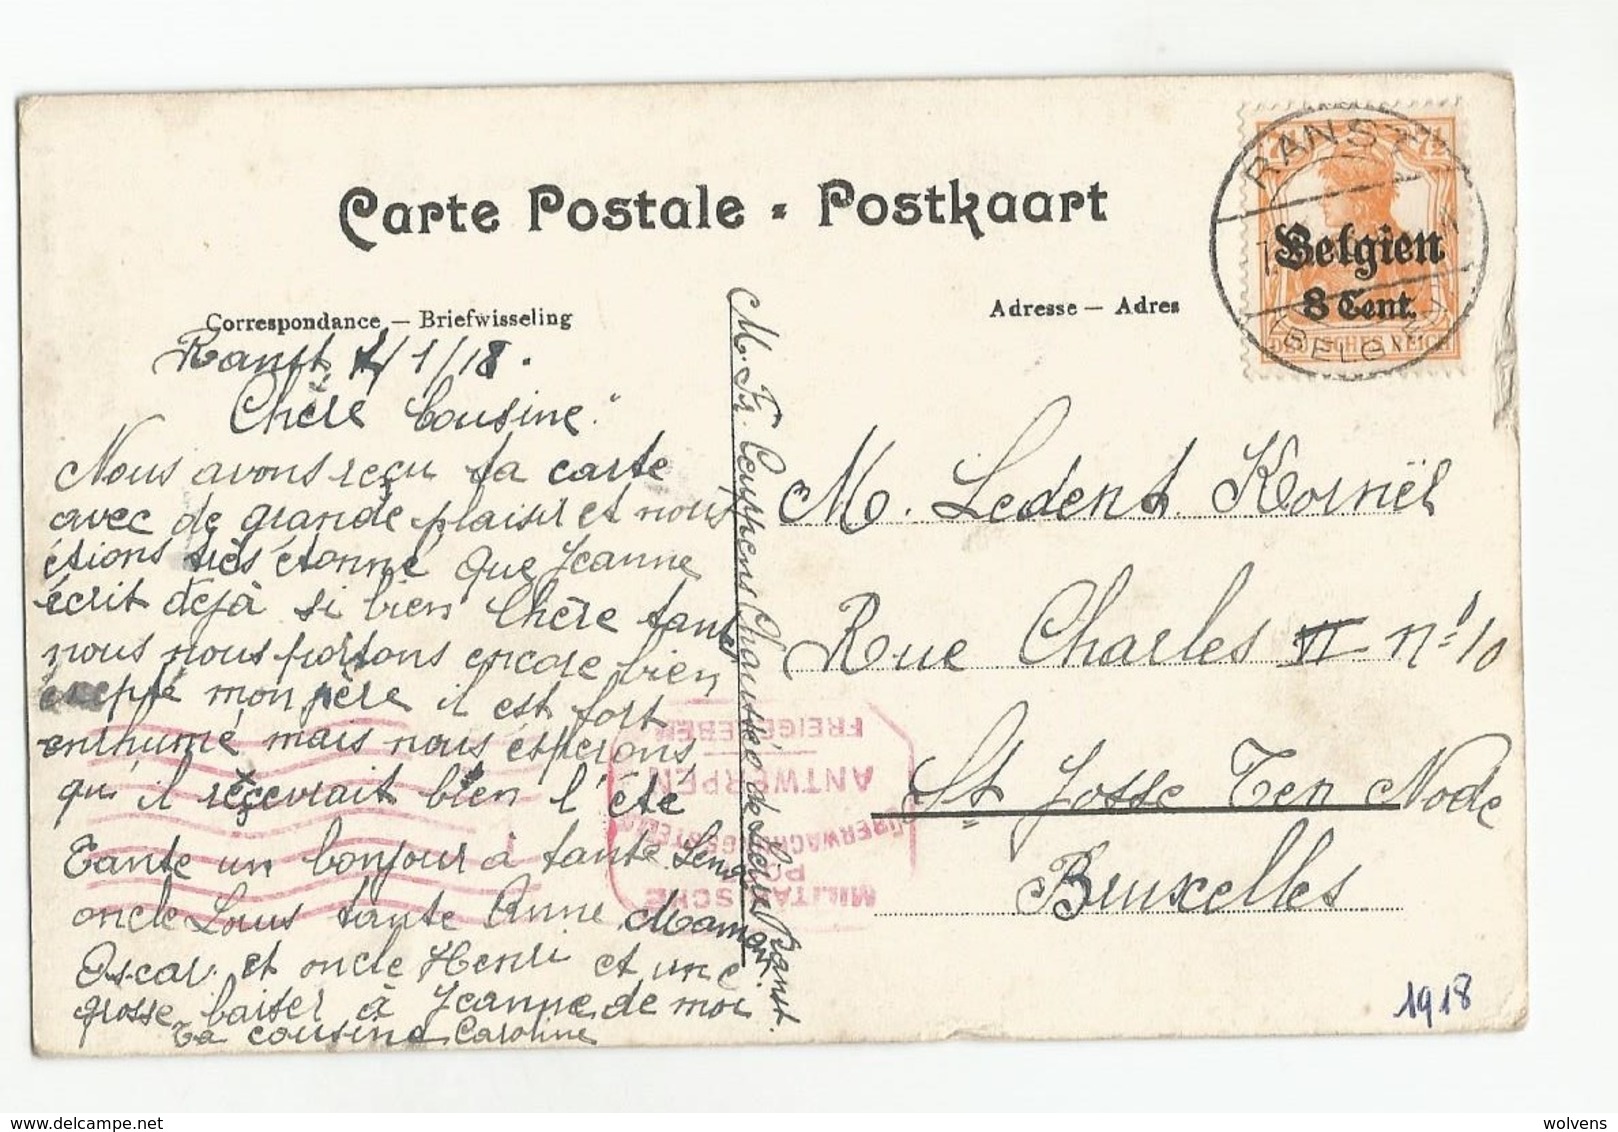 Carte Postale - Postkaart
Correspondance — Briefwisseling
Adresse — Adres
Ranst /1/18.
Chère Cousine.
Nous avons reçu ta carte
avec de grande plaisir et nous
étions très étonné que Jeanne
écrit déjà si bien Chère tante
nous nous portons encore bien
excepté mon père il est fort
enrhumé mais nous éspérons
qu'il reçevrait bien l'été
Tante un bonjour à tante Lena
oncle Louis tante Anne Maman
Oscar et oncle Henri et une
grosse baiser à Jeanne de moi
Ta cousine Caroline
M. Fr. Ceuppens Chaussée de Lierre Ranst.
M. Ledent Kornël
Rue Charles VI n° 10
St Josse Ten Node
Bruxelles
RANST
BELG
Belgien
8 Cent.
DEUTSCHES REICH
7½
MILITÄRISCHE
ÜBERWACHUNGSSTELLE
ANTWERPEN
FREIGEGEBEN
1918
delcampe.net
wolvens